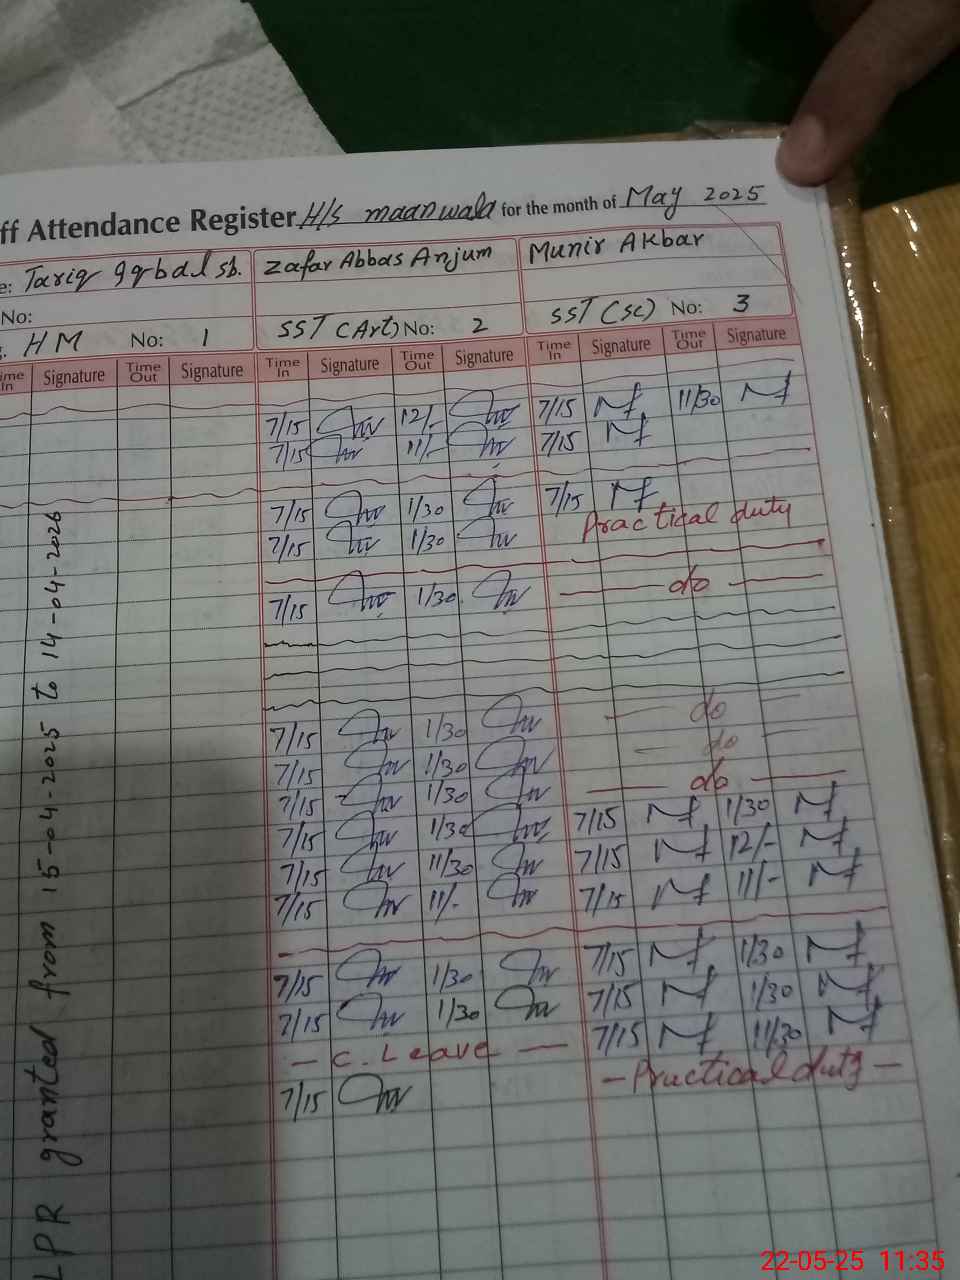 ff Attendance Register H/s maanwala for the month of May 2025
e: Tariq Iqbal sb. Zafar Abbas Anjum Munir Akbar
No:
HM No: 1 SST (Art) No: 2 SST (SC) No: 3
ime In Signature Time Out Signature Time In Signature Time Out Signature Time In Signature Time Out Signature
7/15 12/- 7/15 11/30
7/15 11/- 7/15
7/15 1/30 7/15
7/15 1/30 Practical duty
7/15 1/30 do
7/15 1/30 do
7/15 1/30 do
7/15 1/30 do
7/15 1/30 7/15 1/30
7/15 11/30 7/15 12/-
7/15 11/- 7/15 11/-
7/15 1/30 7/15 1/30
7/15 1/30 7/15 1/30
- C. Leave - 7/15 11/30
7/15 - Practical duty -
LPR granted from 15-04-2025 to 14-04-2026
22-05-25 11:35